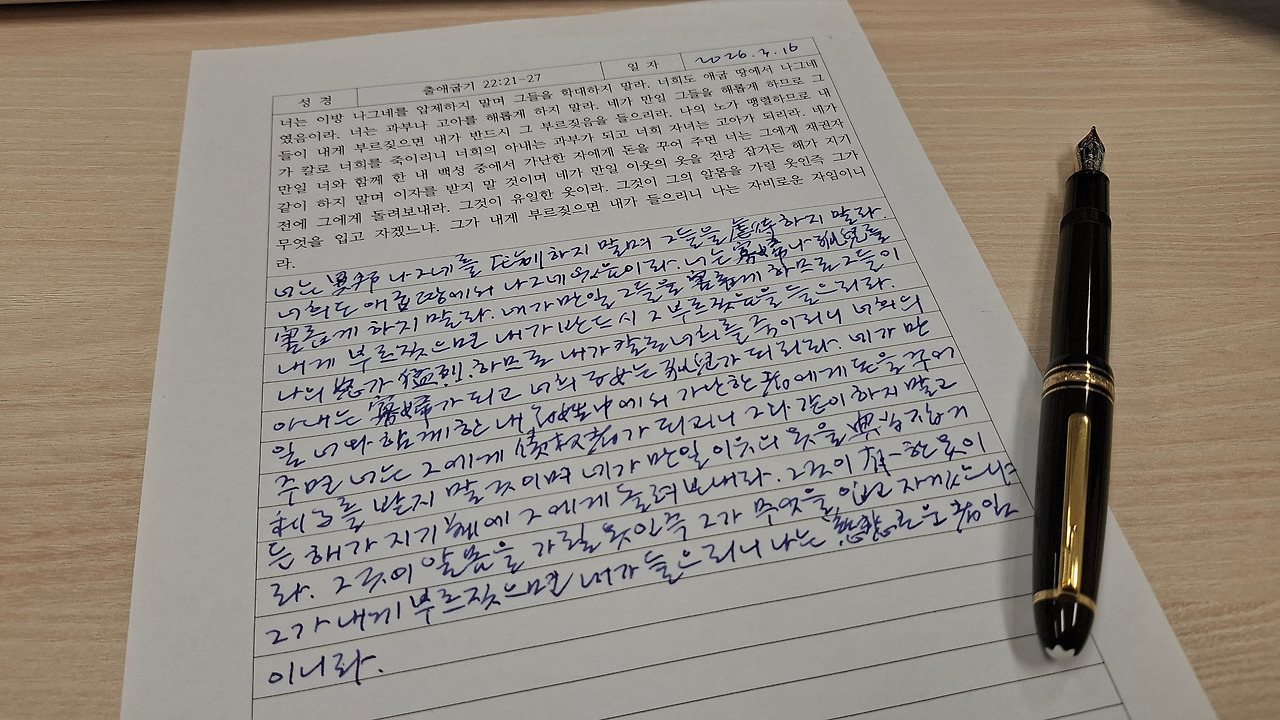 성 경 출애굽기 22:21-27 일 자 2026. 3. 16
너는 이방 나그네를 압제하지 말며 그들을 학대하지 말라. 너희도 애굽 땅에서 나그네
였음이라. 너는 과부나 고아를 해롭게 하지 말라. 네가 만일 그들을 해롭게 하므로 그
들이 내게 부르짖으면 내가 반드시 그 부르짖음을 들으리라. 나의 노가 맹렬하므로 내
가 칼로 너희를 죽이리니 너희의 아내는 과부가 되고 너희 자녀는 고아가 되리라. 네가
만일 너와 함께 한 내 백성 중에서 가난한 자에게 돈을 꾸어 주면 너는 그에게 채권자
같이 하지 말며 이자를 받지 말 것이며 네가 만일 이웃의 옷을 전당 잡거든 해가 지기
전에 그에게 돌려보내라. 그것이 유일한 옷이라. 그것이 그의 알몸을 가릴 옷인즉 그가
무엇을 입고 자겠느냐. 그가 내게 부르짖으면 내가 들으리니 나는 자비로운 자임이니
라.
너는 異邦 나그네를 壓制하지 말며 그들을 虐待하지 말라.
너희도 애굽 땅에서 나그네였음이라. 너는 寡婦나 孤兒를
害롭게 하지 말라. 네가 만일 그들을 害롭게 하므로 그들이
내게 부르짖으면 내가 반드시 그 부르짖음을 들으리라.
나의 怒가 猛烈.하므로 내가 칼로 너희를 죽이리니 너희의
아내는 寡婦가 되고 너희 子女는 孤兒가 되리라. 네가 만
일 너와 함께 한 내 百姓中에서 가난한 者에게 돈을 꾸어
주면 너는 그에게 債權者가 되거나 그와 같이 하지 말고
利子를 받지 말 것이며 네가 만일 이웃의 옷을 典當 잡거
든 해가 지기 前에 그에게 돌려보내라. 그것이 唯一한 옷이
라. 그것이 알몸을 가릴 옷인즉 그가 무엇을 입고 자겠느냐
그가 내게 부르짖으면 내가 들으리니 나는 慈悲로운 者임
이니라.